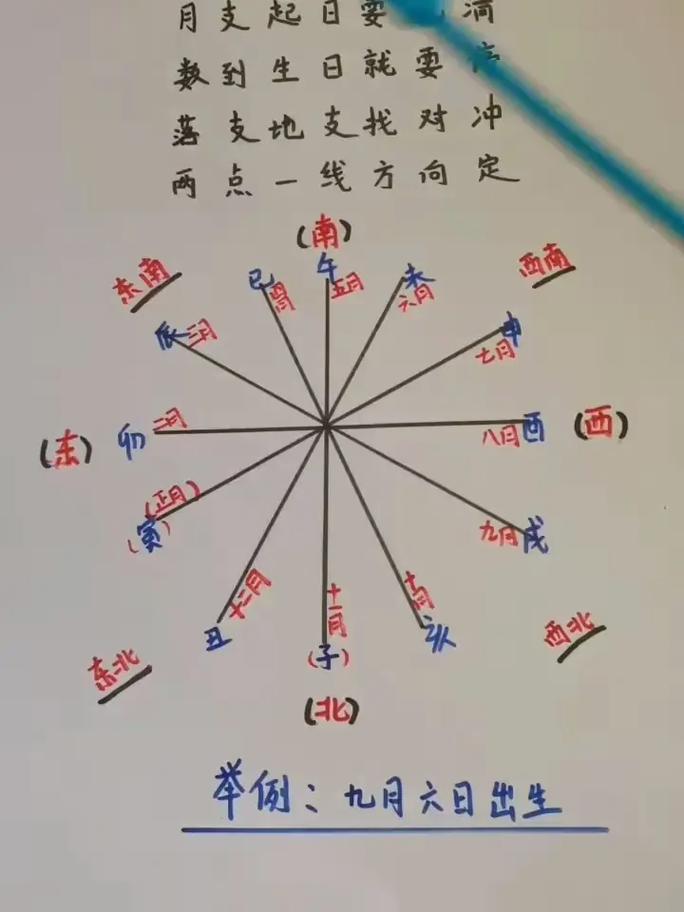 月支起日要
数到生日就要
落支地支找对冲
两点一线方向定
(南)
东南
西南
巳 四月
午 五月
未 六月
辰 三月
申 七月
(东)
卯 二月
八月 酉
(西)
(正月)
(寅)
九月 戌
十二月
丑
十一月
(子)
十月
亥
东北
西北
(北)
举例：九月六日出生